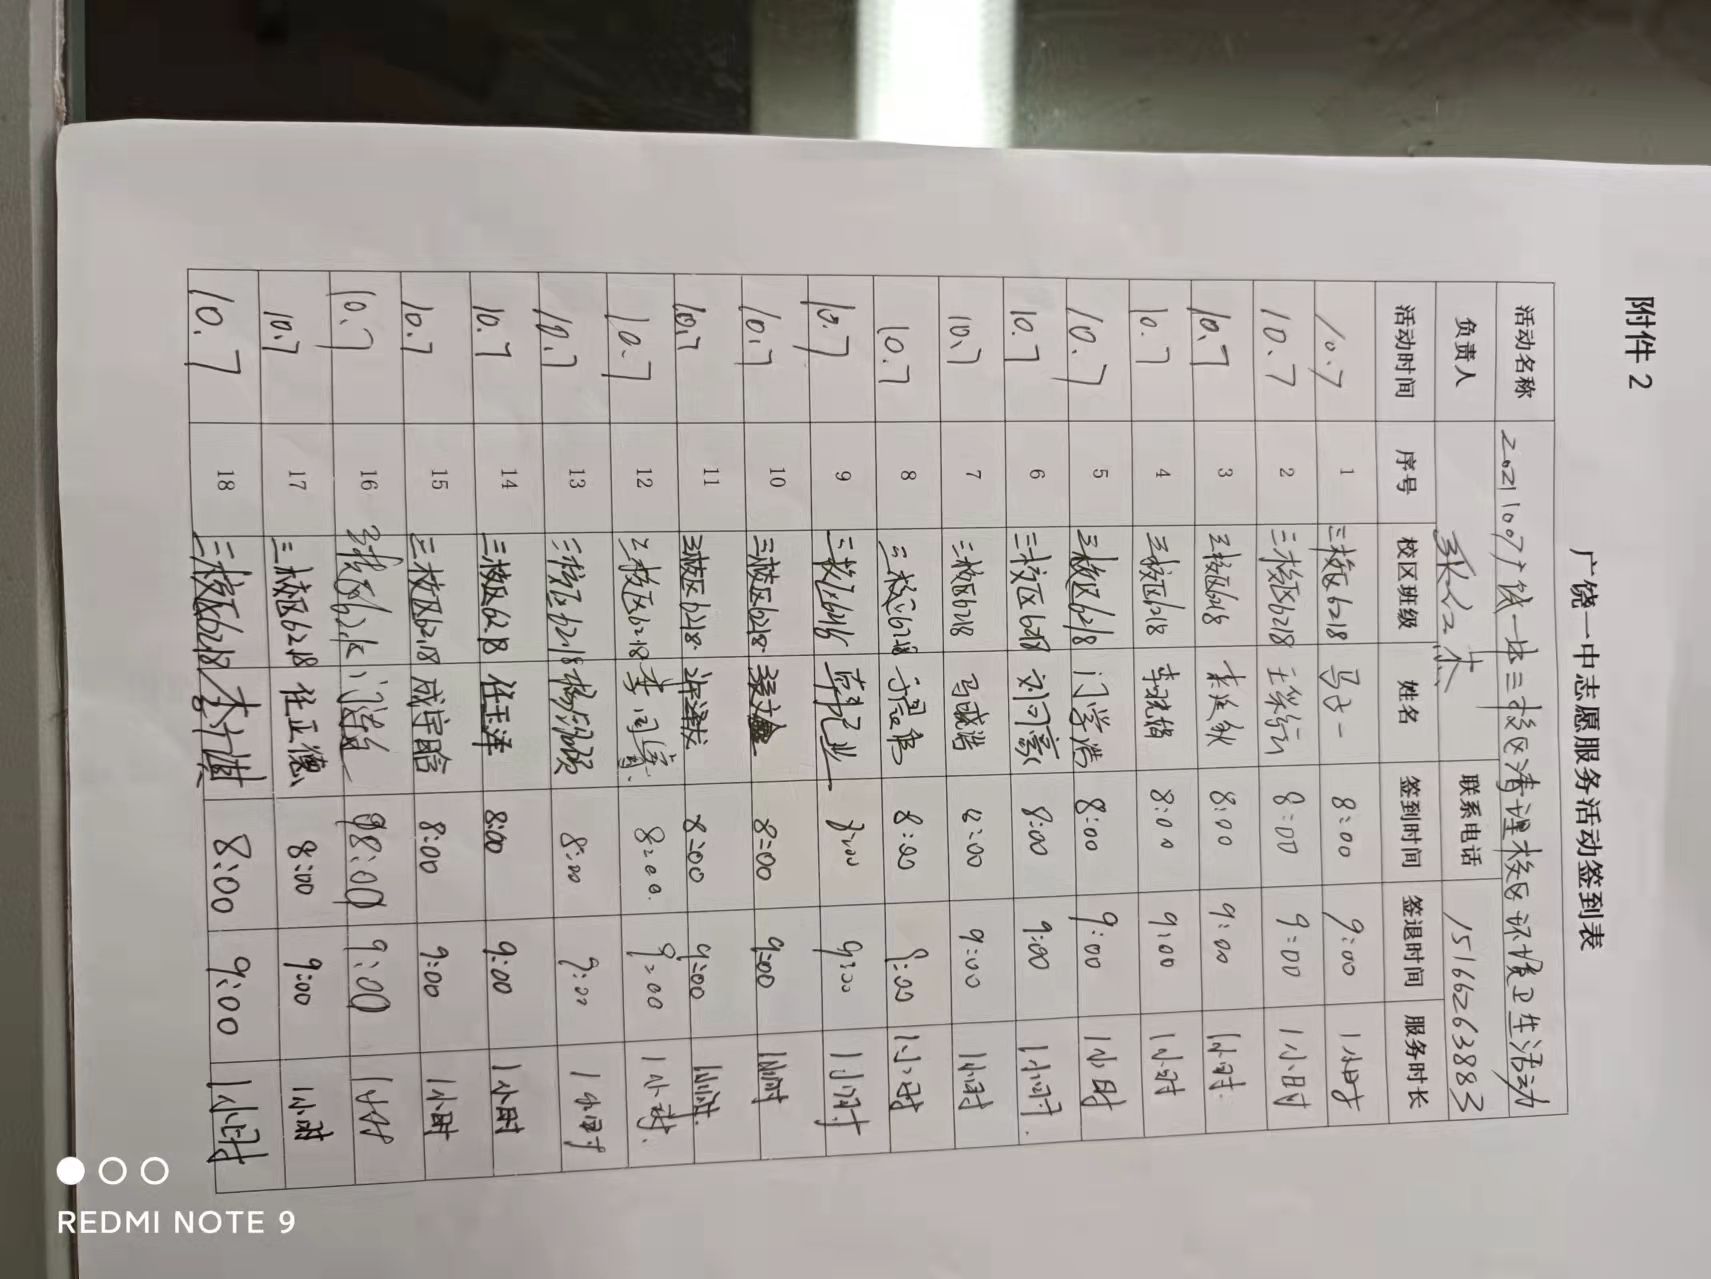 附件 2
广饶一中志愿服务活动签到表
活动名称 20211007广饶一中三校区清理校区环境卫生活动
负责人 联系电话 15166263883
活动时间 序号 校区班级 姓名 签到时间 签退时间 服务时长
10.7 1 三校区6218 马子一 8:00 9:00 1小时
10.7 2 三校区6218 8:00 9:00 1小时
10.7 3 三校区6218 8:00 9:00 1小时
10.7 4 三校区6218 8:00 9:00 1小时
10.7 5 三校区6218 门学浩 8:00 9:00 1小时
10.7 6 三校区6218 8:00 9:00 1小时
10.7 7 三校区6218 8:00 9:00 1小时
10.7 8 三校区6218 8:00 9:00 1小时
10.7 9 三校区 8:00 9:00 1小时
10.7 10 三校区6218 8:00 9:00 1小时
10.7 11 三校区6218 8:00 9:00 1小时
10.7 12 三校区6218 8:00 9:00 1小时
10.7 13 三校区6218 8:00 9:00 1小时
10.7 14 三校区6218 任玉泽 8:00 9:00 1小时
10.7 15 三校区6218 成宇晗 8:00 9:00 1小时
10.7 16 8:00 9:00 1小时
10.7 17 三校区6218 任正德 8:00 9:00 1小时
10.7 18 三校区6218 8:00 9:00 1小时
REDMI NOTE 9